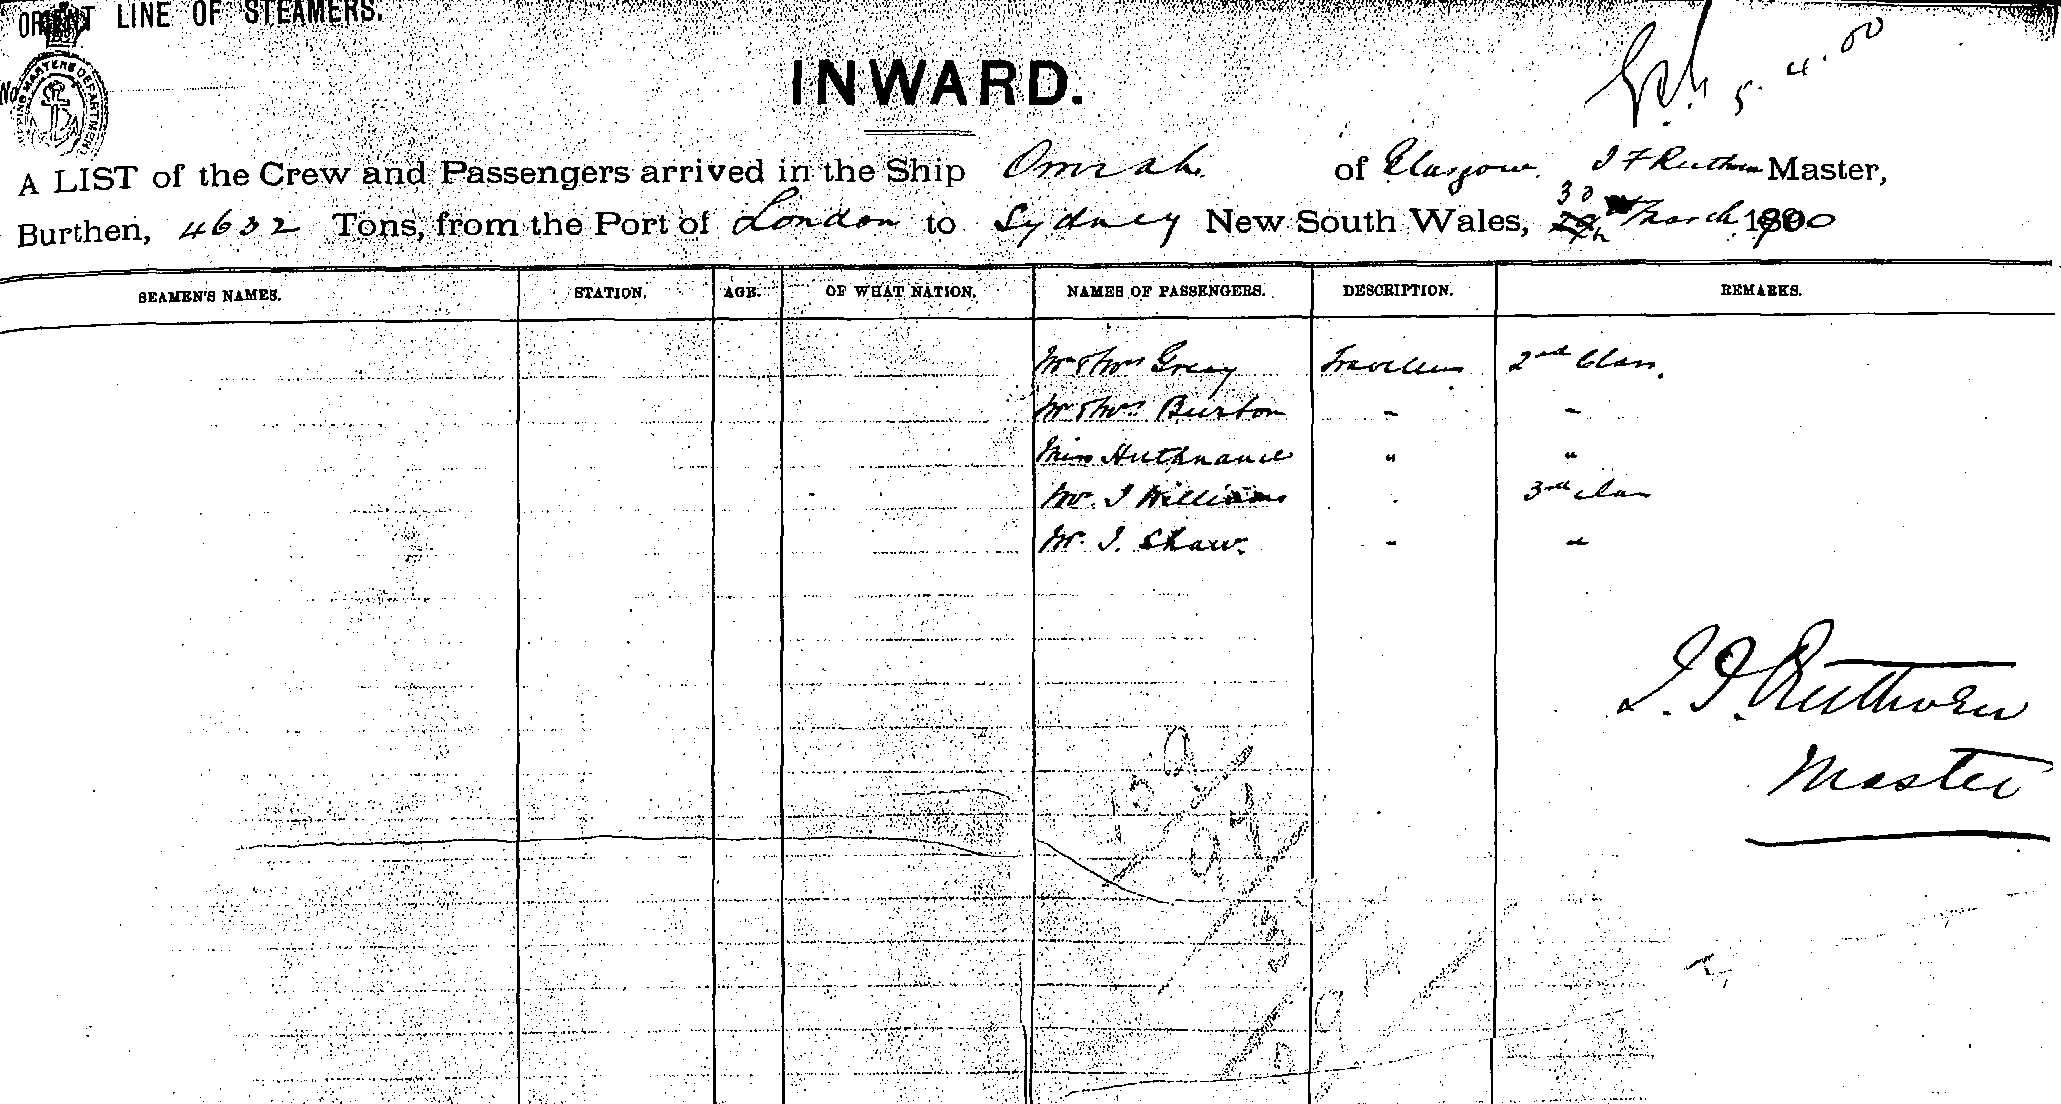 ORIENT LINE OF STEAMERS.
No.
SHIPPING MASTERS DEPARTMENT
INWARD.
5.4.00
A LIST of the Crew and Passengers arrived in the Ship Omrah of Glasgow. J F Ruthven Master,
Burthen, 4632 Tons, from the Port of London to Sydney New South Wales, 30 March 1900
SEAMEN'S NAMES. STATION. AGE. OF WHAT NATION. NAMES OF PASSENGERS. DESCRIPTION. REMARKS.
Mr & Mrs Greay Travellers 2nd Class.
Mr & Mrs Burton " "
Miss Huthnance " "
Mr. J Williams . 3rd class
Mr. J. Shaw. " "
J. F. Ruthven
Master